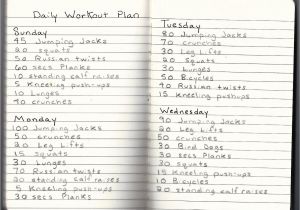 Daily Workout Plan
Sunday
45 Jumping Jacks
20 squats
50 Russian twists
60 secs Planks
10 standing calf raises
5 Kneeling push-ups
10 Lunges
50
40 crunches
Monday
100 Jumping Jacks
50 crunches
20 Leg Lifts
15 squats
30 Lunges
70 Russian twists
20 standing calf raises
5 Kneeling push-ups
30 secs Planks
Tuesday
80 Jumping Jacks
70 crunches
30 Leg Lifts
20 squats
30 Lunges
50 Bicycles
20
15 kneeling push-ups
Wednesday
90 Jumping Jacks
20 Leg Lifts
50 crunches
30 Bird Dogs
30 secs Planks
15 squats
15 kneeling push-ups
50 Bicycles
20 standing calf raises